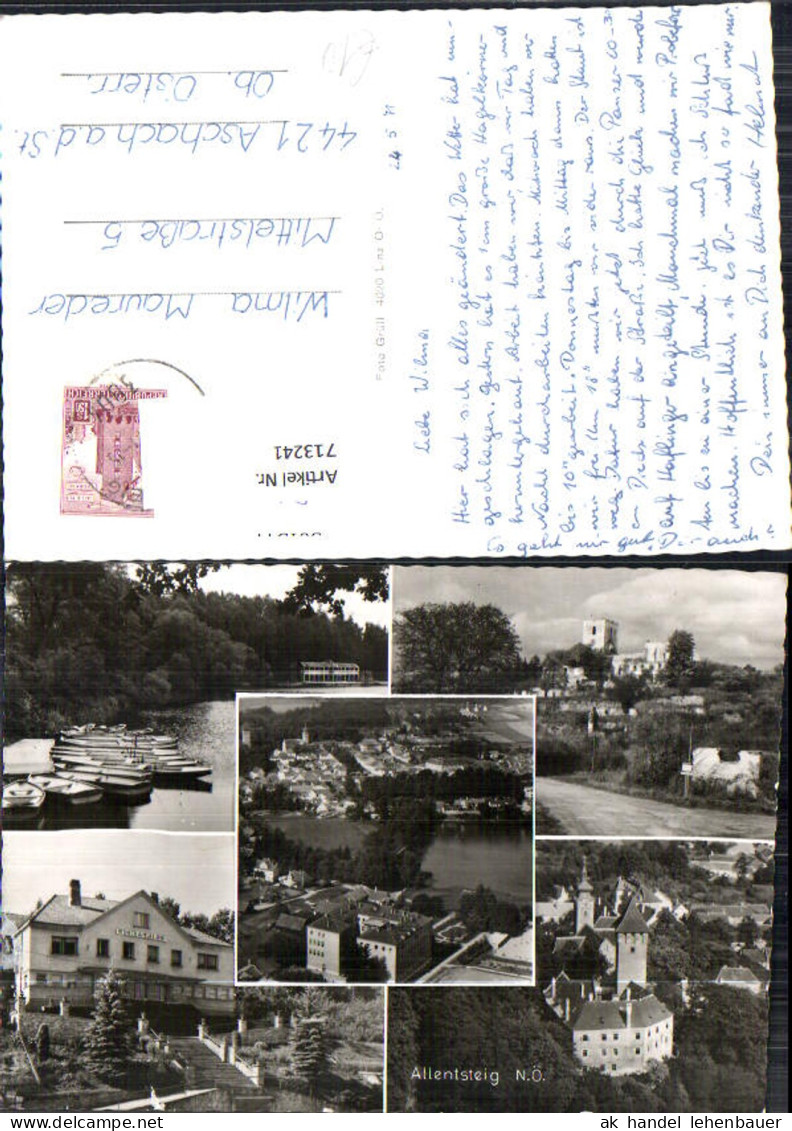 Liebe Wilma.
Hier hat sich alles geändert. Das Wetter hat um-
geschlagen. Gestern hat es 1 cm große Hagelkörner
Arbeit haben wir daß wir Tag und
Nacht durcharbeiten könnten. Mittwoch haben wir
bis gearbeitet. Donnerstag bis Mittag dann hatten
wir frei. Um 18°° mußten wir wieder raus. Der Staub ist
weg. Dafür haben wir jetzt durch die Panzer 20-30
cm Dreck auf der Straße. Ich hatte Glück und wurde
auf Haflinger eingeteilt. Manchmal machen wir
bis zu einer Stunde. Jetzt muß ich Schluß
machen. Hoffentlich ist es Dir recht so
Dein immer an Dich denkender Helmut
geht mir gut.
auch
24 5 71
Foto Grüll 4020 Linz O.Ö.
REPUBLIK ÖSTERREICH
Wilma Maureder
Mittelstraße 5
4421 Aschach a.d. St.
Ob. Österr.
Artikel Nr.
713241
Allentsteig N.Ö.
ak handel lehenbauer